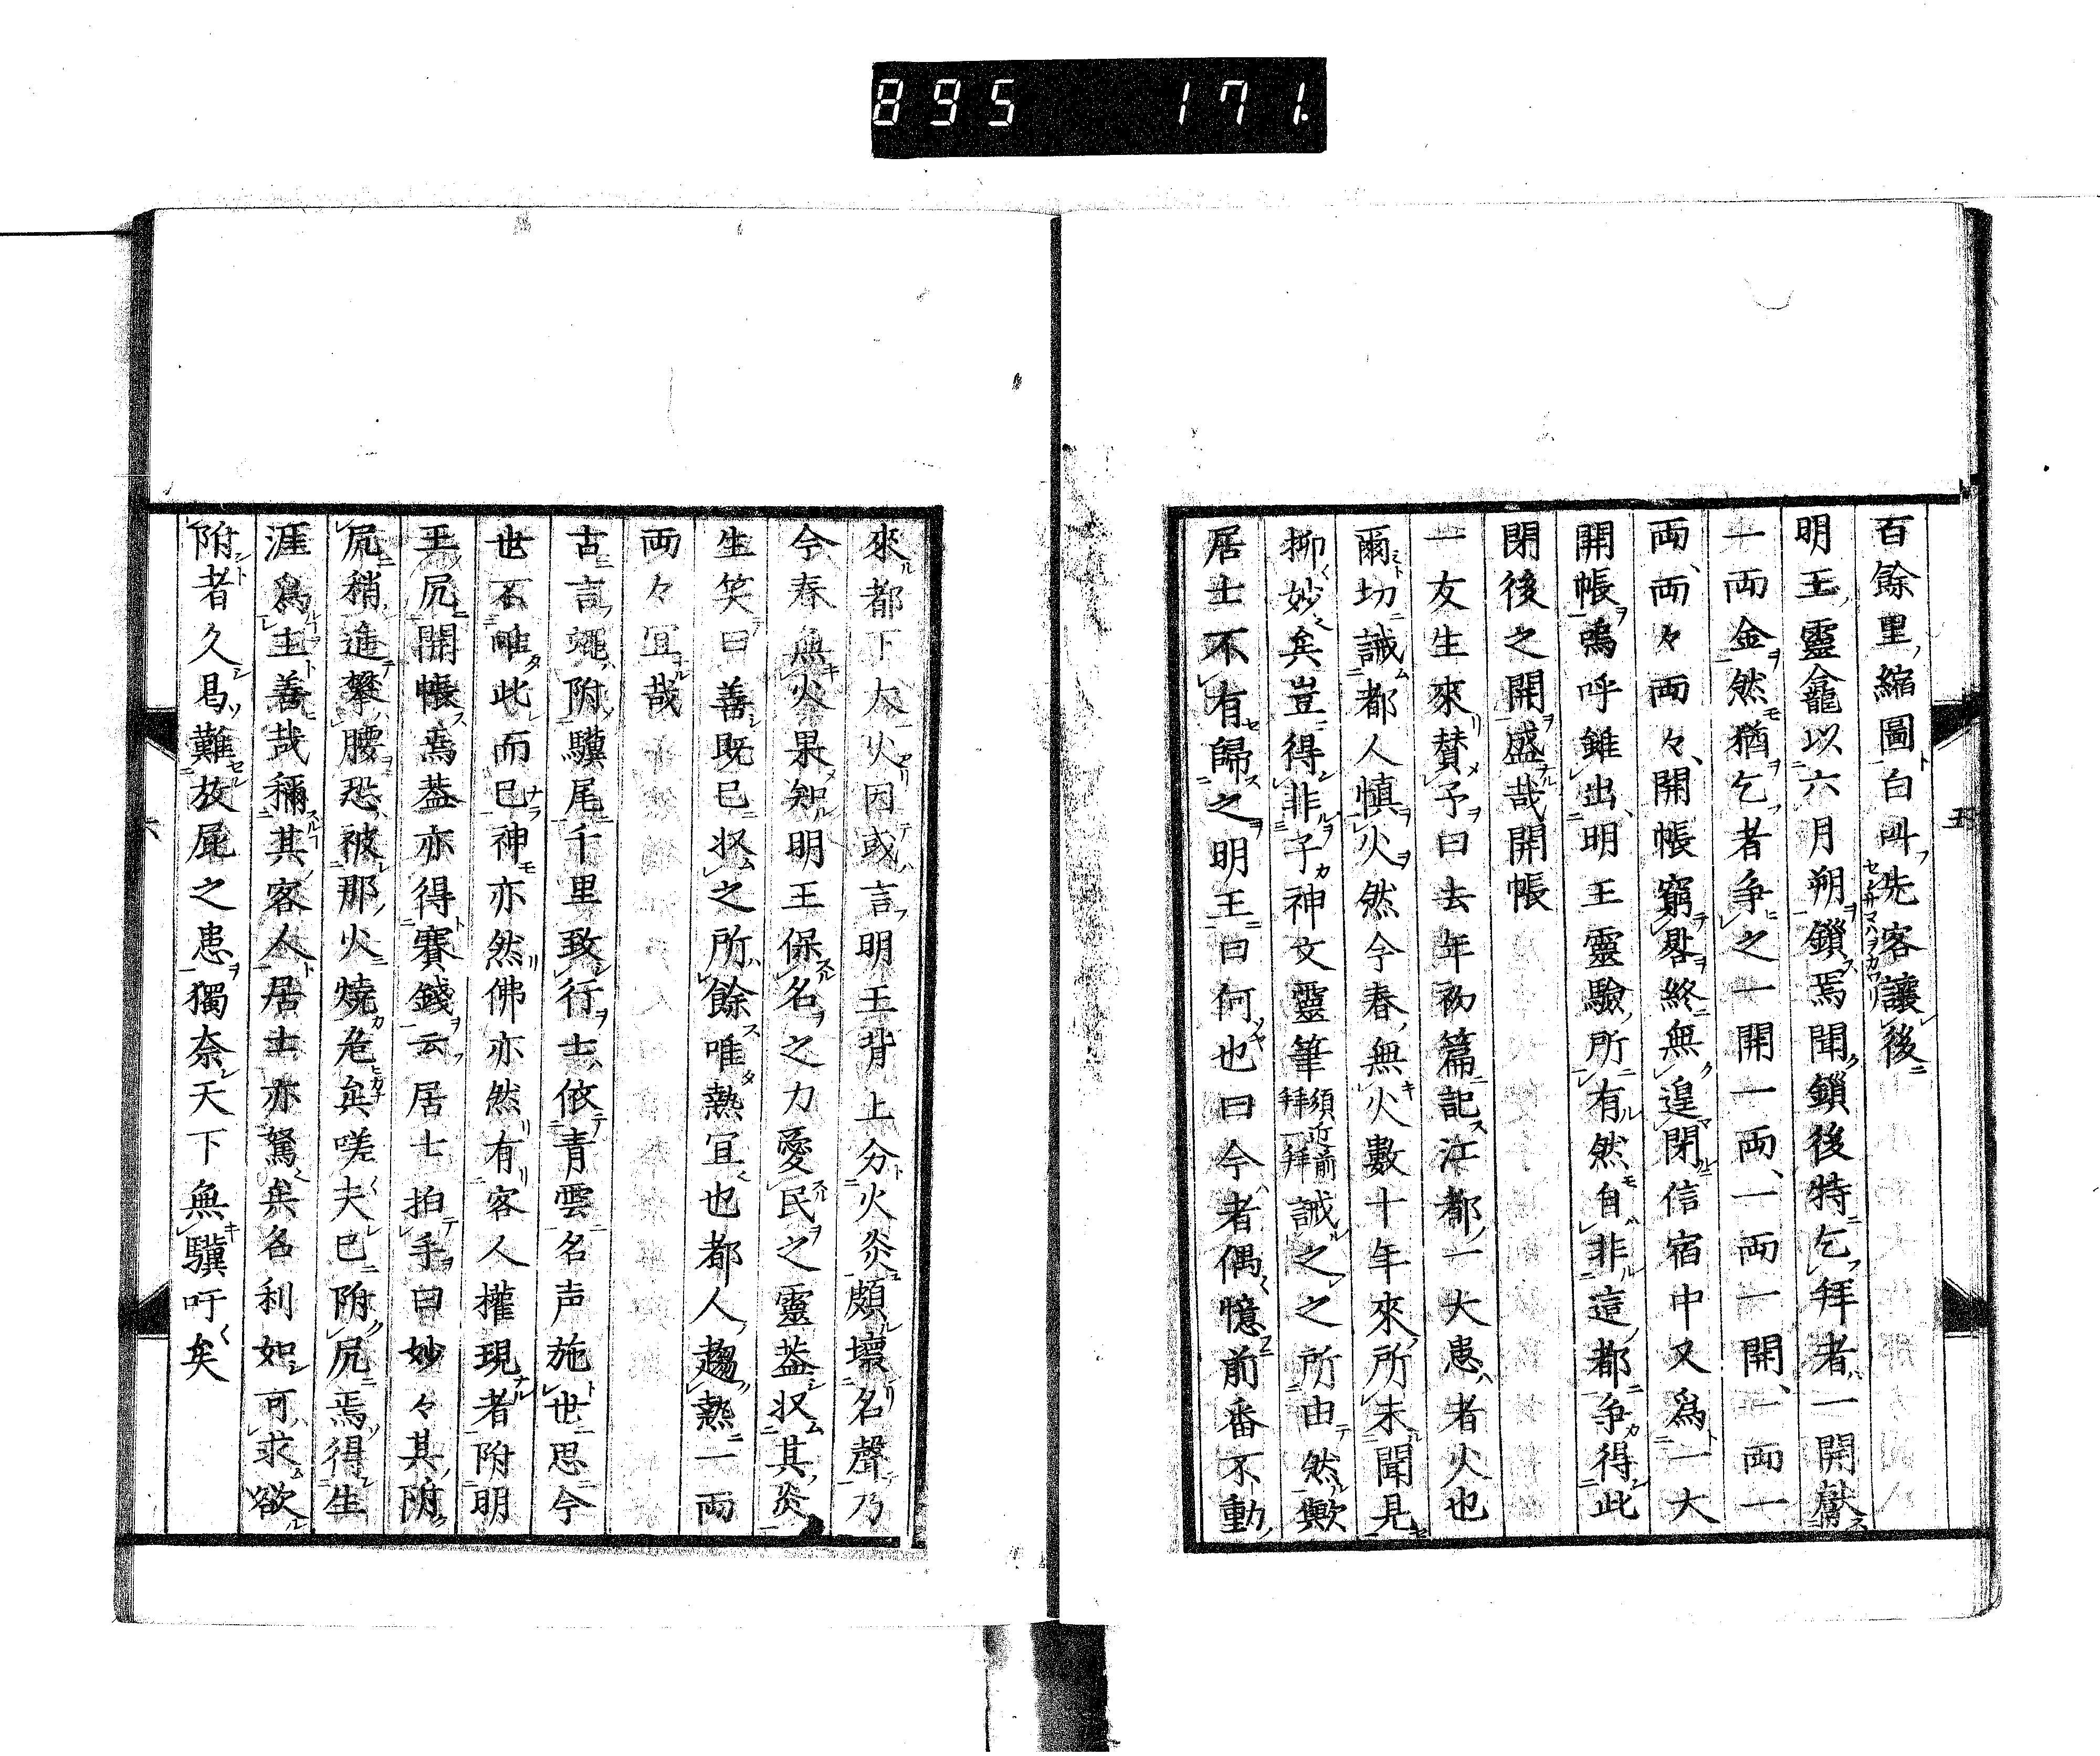 895 171.
百餘里縮圖白叫先客讓後
明王靈龕以六月朔鎖焉聞鎖後特乞拜者一開獻
一両金然猶乞者争之一開一両、一両一開、一両一
両、両々両々、開帳窮晷終無遑閉信宿中又爲一大
開帳嗚呼雖出明王靈驗所有然自非這都争得此
閉後之開盛哉開帳
一友生來賛予曰去年初篇記江都一大患者火也
爾切誡都人慎火然今春無火數十年來所未聞見
抑妙矣豈得非子神文靈筆須近前拜一拜誡之之所由然歟
居士不有歸之明王曰何也曰今者偶憶前番不動
五
來都下大火因或言明王背上分火炎頗壞名聲乃
今春無火果知明王保名之力愛民之靈蓋収其炎
生笑曰善既已収之所餘唯熱宜也都人趨熱一両
両々宜哉
古言蠅附驥尾千里致行士依青雲名声施世思今
世不唯此而已神亦然佛亦然有客人權現者附明
王尻開帳焉蓋亦得賽錢云居士拍手曰妙々其附
尻稍進攀腰恐被那火焼危矣嗟夫已附尻焉得生
涯爲主善哉稱其客人居士亦駑矣名利如可求欲
附者久曷難故屁之患獨奈天下無驥吁矣
六